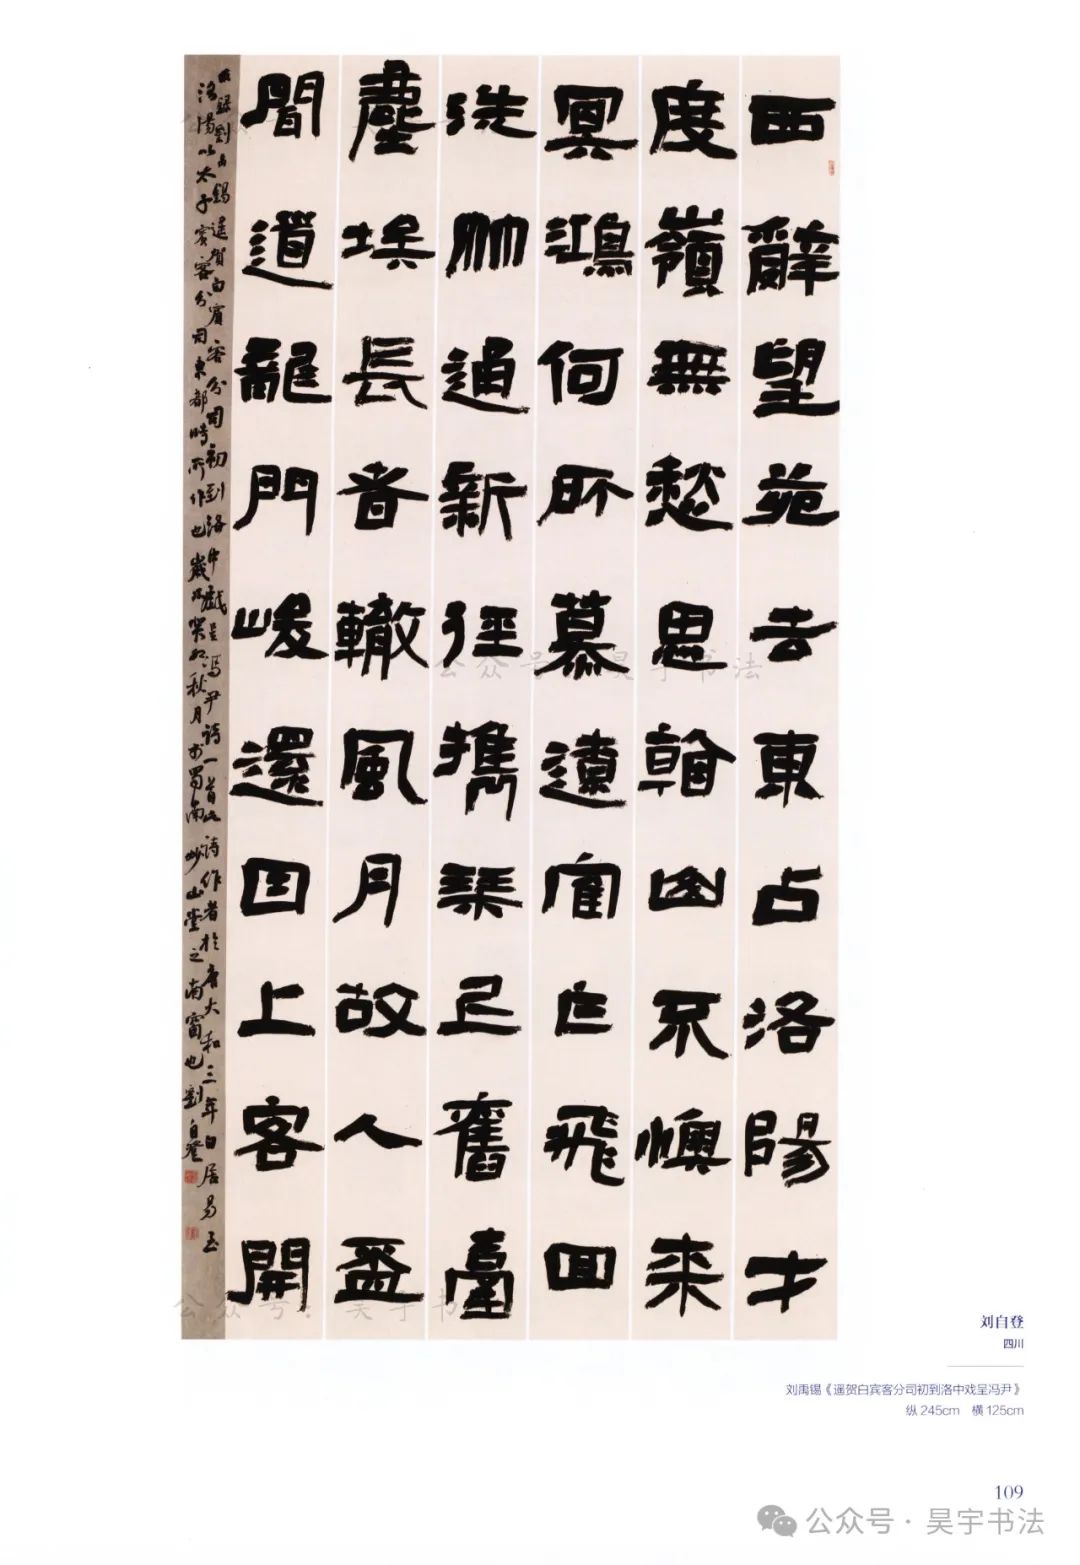 西辭望苑去東占洛陽才
度嶺無愁思看山不懊來
冥鴻何所慕遠宦乍飛回
洗竹通新徑攜琴上舊臺
塵埃長者轍風月故人盃
聞道龍門峻還因上客開
右錄劉禹錫遙賀白賓客分司初到洛中戲呈馮尹詩一首此詩作者於唐大和三年白居易至
洛陽以太子賓客分司東都時所作也歲次癸卯秋月於蜀南妙山堂之南窗也劉白登
刘白登
四川
刘禹锡《遥贺白宾客分司初到洛中戏呈冯尹》
纵245cm 横125cm
109
公众号·昊宇书法